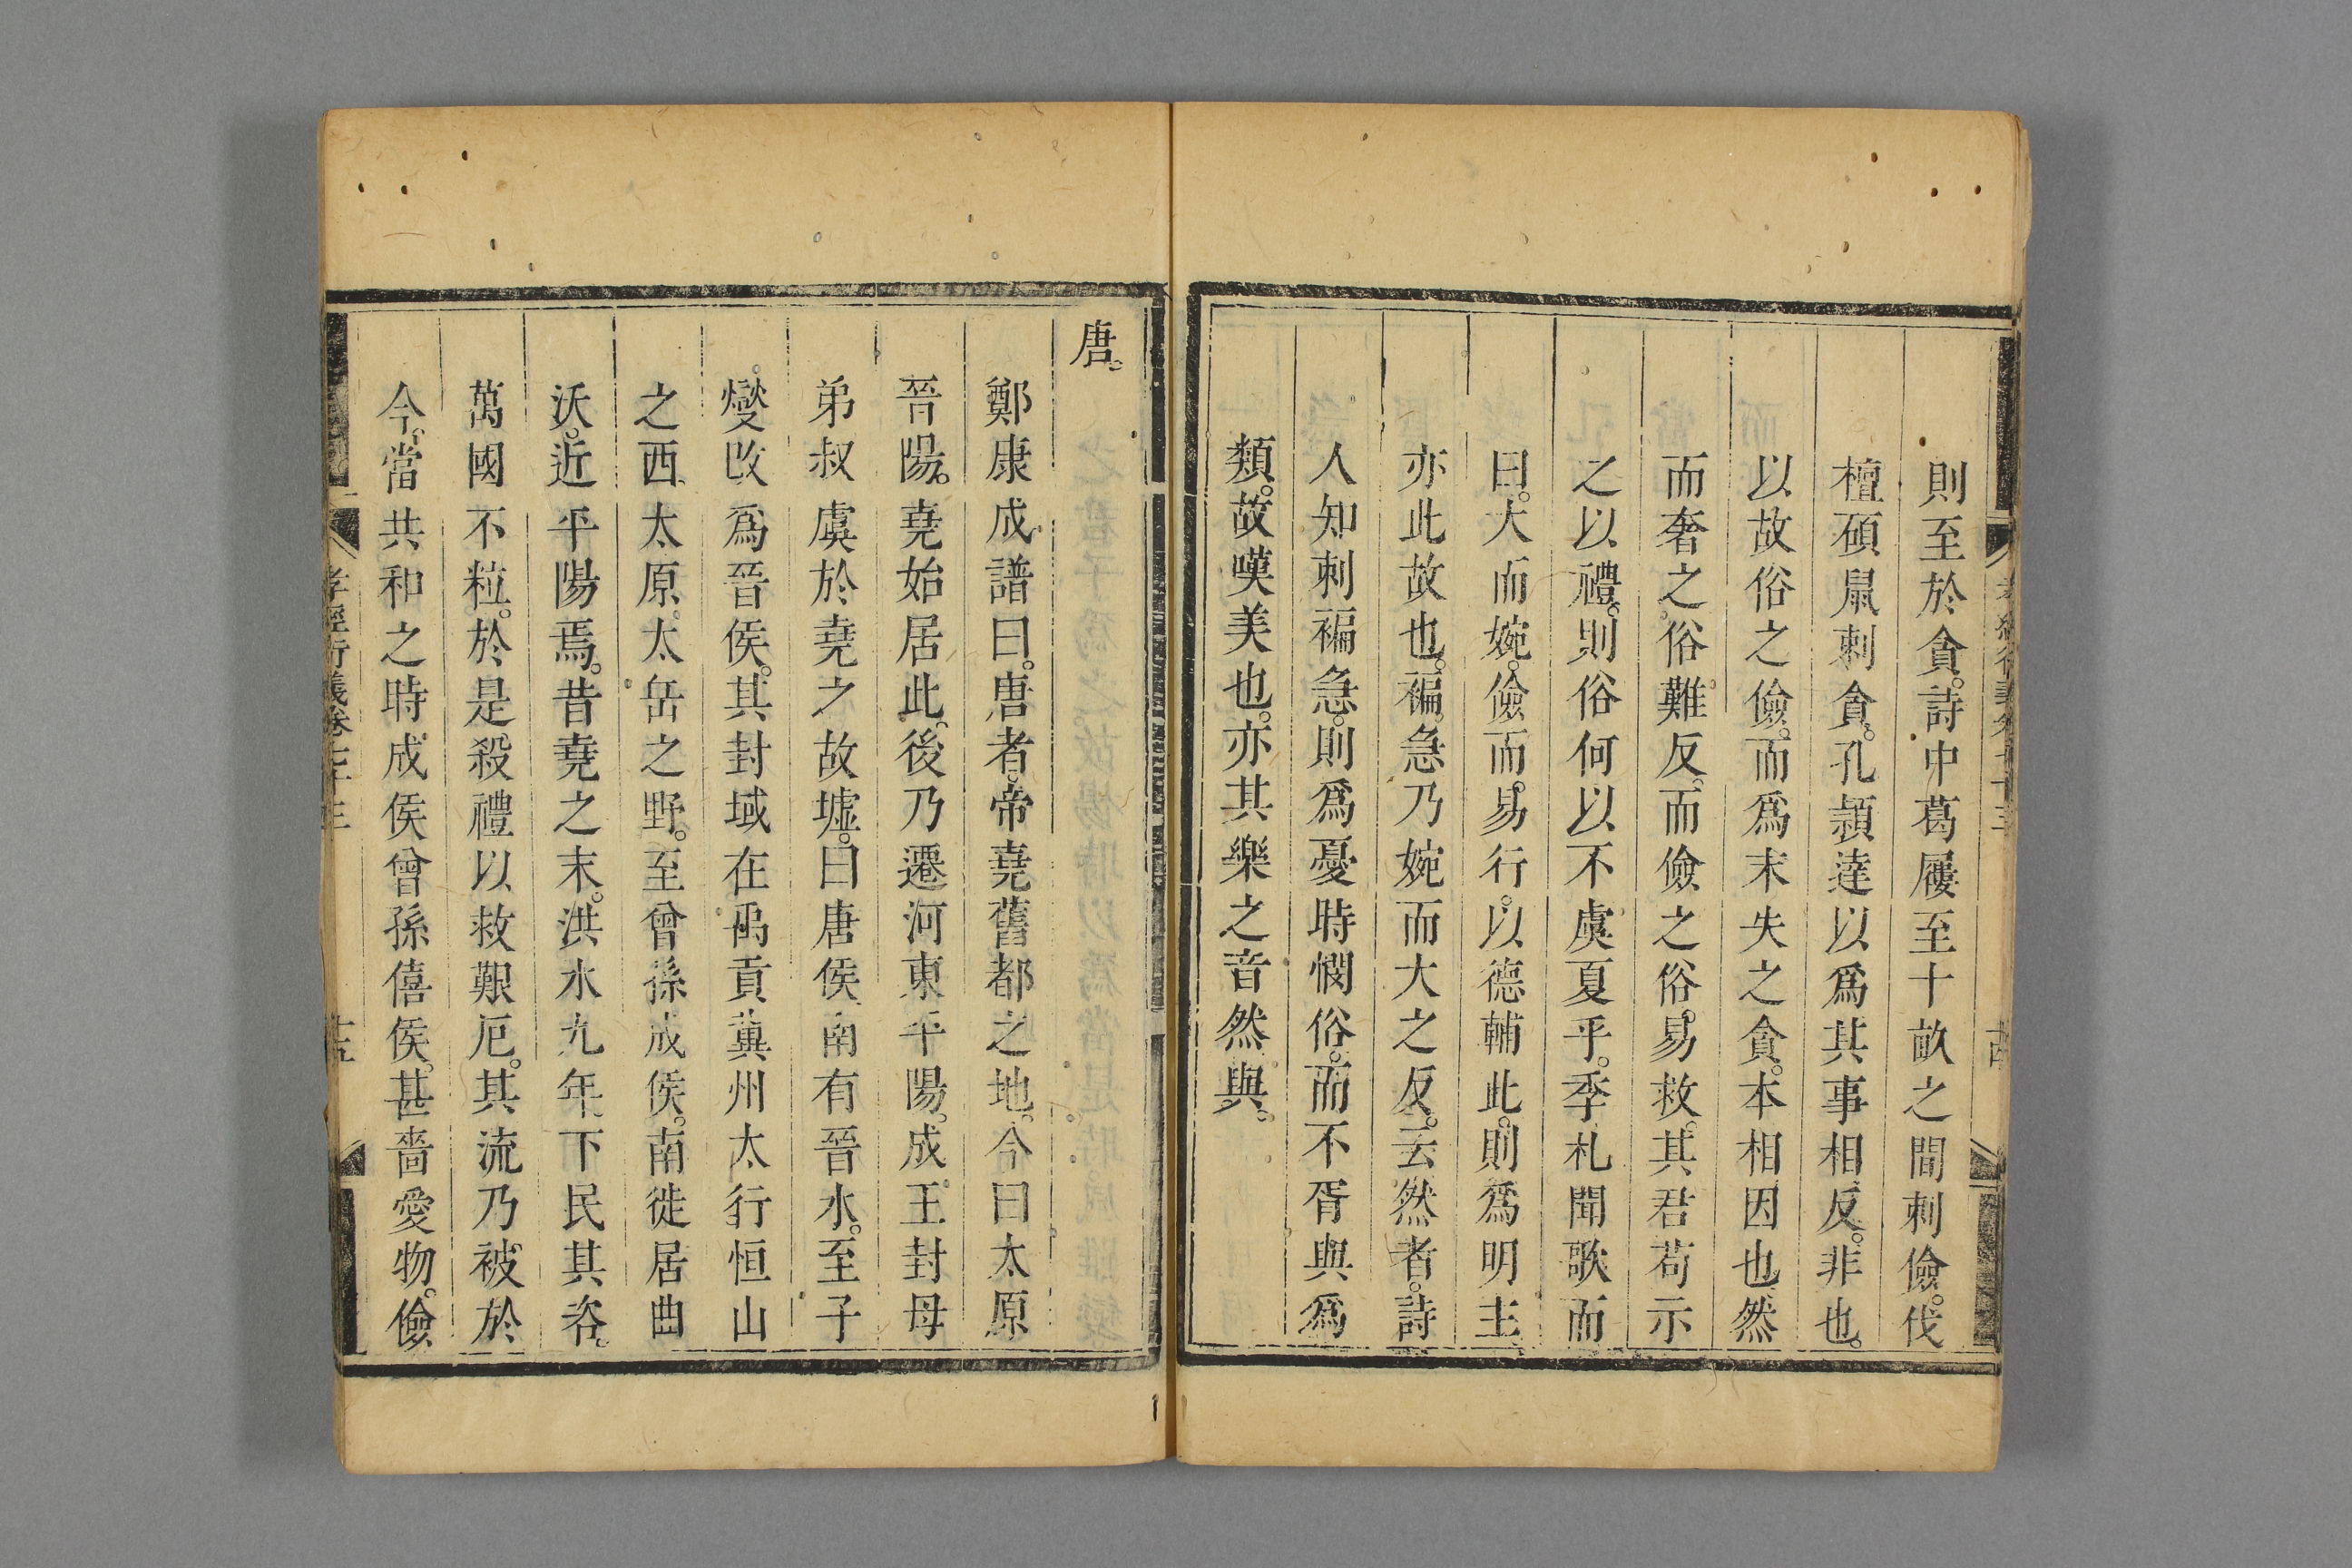 則至於貪。詩中葛屨至十畝之間刺儉。伐
檀碩鼠刺貪。孔穎達以爲其事相反。非也。
以故俗之儉。而爲末失之貪。本相因也。然
而奢之俗難反。而儉之俗。易救。其君苟示
之以禮。則俗何以不虞夏乎。季札聞歌而
曰。大而婉。儉而。易行。以德輔此。則爲明主
亦此故也。褊急乃婉而大之反。云然者。詩
人知刺褊急。則爲憂時憫俗。而不胥與爲
類。故嘆美也。亦其樂之音然與。
唐。
鄭康成譜曰。唐者。帝堯舊都之地。今曰太原
晉陽。堯始居此。後乃遷河東平陽。成王封母
弟叔虞於堯之故墟。曰唐侯南有晉水。至子
燮改爲晉侯。其封域在禹貢冀州太行恒山
之西太原。太岳之野。至曾孫成侯。南徙居曲
沃。近平陽焉。昔堯之末。洪水九年下民其咨。
萬國不粒。於是殺禮以救艱厄。其流乃被於
今。當共和之時成侯曾孫僖侯。甚嗇愛物。儉
孝經衍義卷七十三
十五